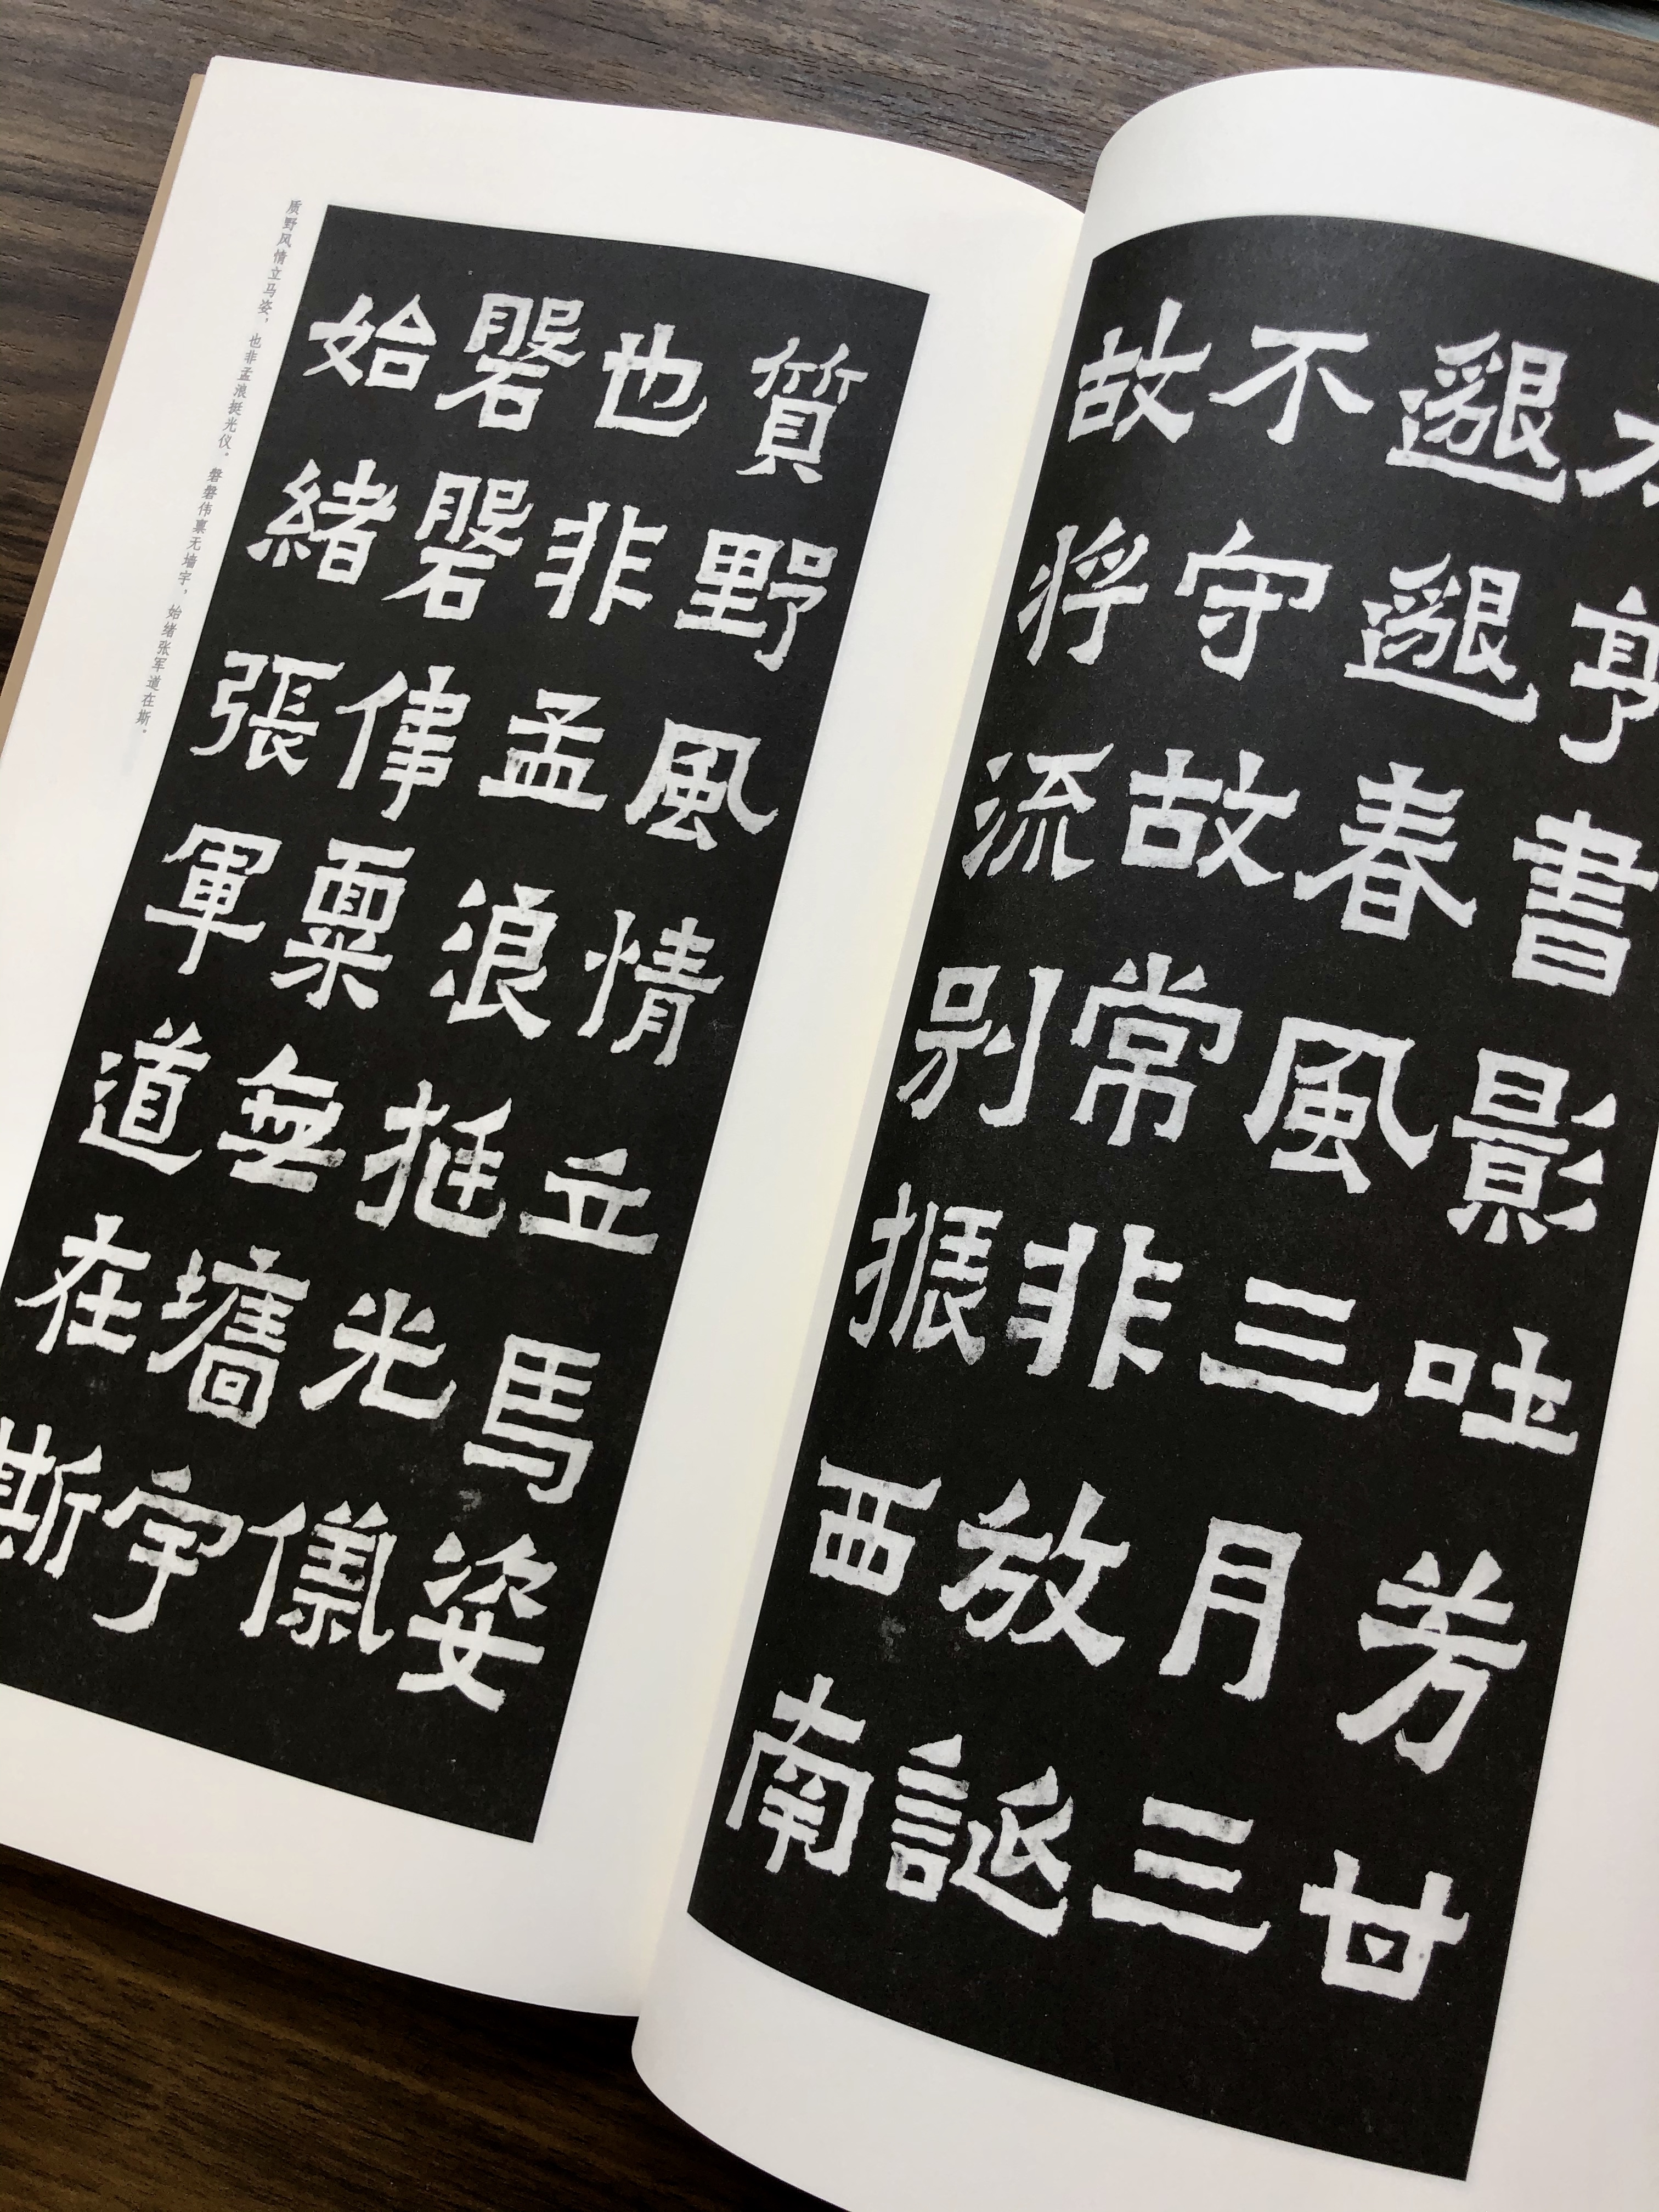 亨書影吐芳甘
邈邈春風三月三
不守故常非放誕
故將流別振西南
質野風情立馬姿
也非孟浪挺光儀
磐磐偉稟無墻宇
始緒張軍道在斯
质野风情立马姿，也非孟浪挺光仪。磐磐伟禀无墙宇，始绪张军道在斯。